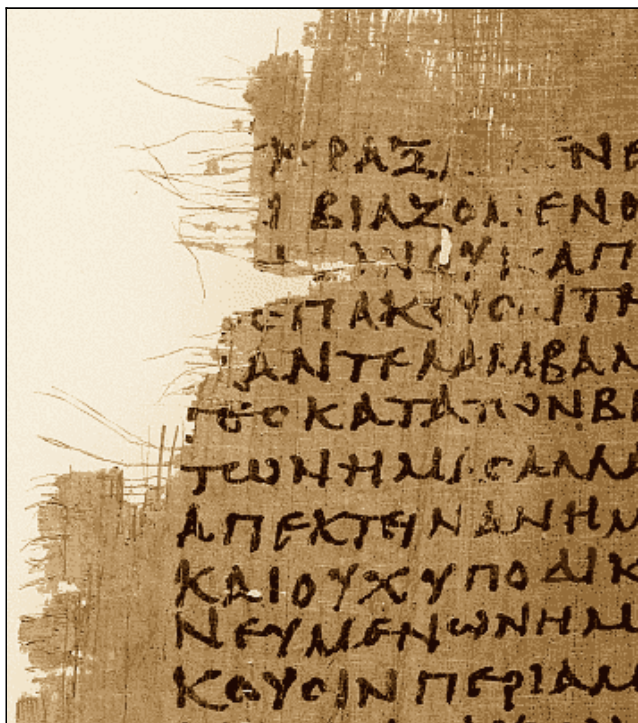 ΚΡΑΞΑ ΕΝΕ
Ι ΒΙΑΖΟΜΕΝΟ
ΩΝΟΥΚΑΠ
ΕΠΑΚΟΥϹΑΙΤΗ
ΑΝΤΕΛΑΜΒΑΝ
ΤΕϹΚΑΤΑΤΩΝΒΙ
ΤΩΝΗΜΑϹΑΛΛΑ
ΑΠΕΚΤΕΙΝΑΝΗΜ
ΚΑΙΟΥΧΥΠΟΔΙΚ
ΝΕΥΜΕΝΩΝΗΜ
ΚΟΥϹΙΝΠΕΡΙΑΜ